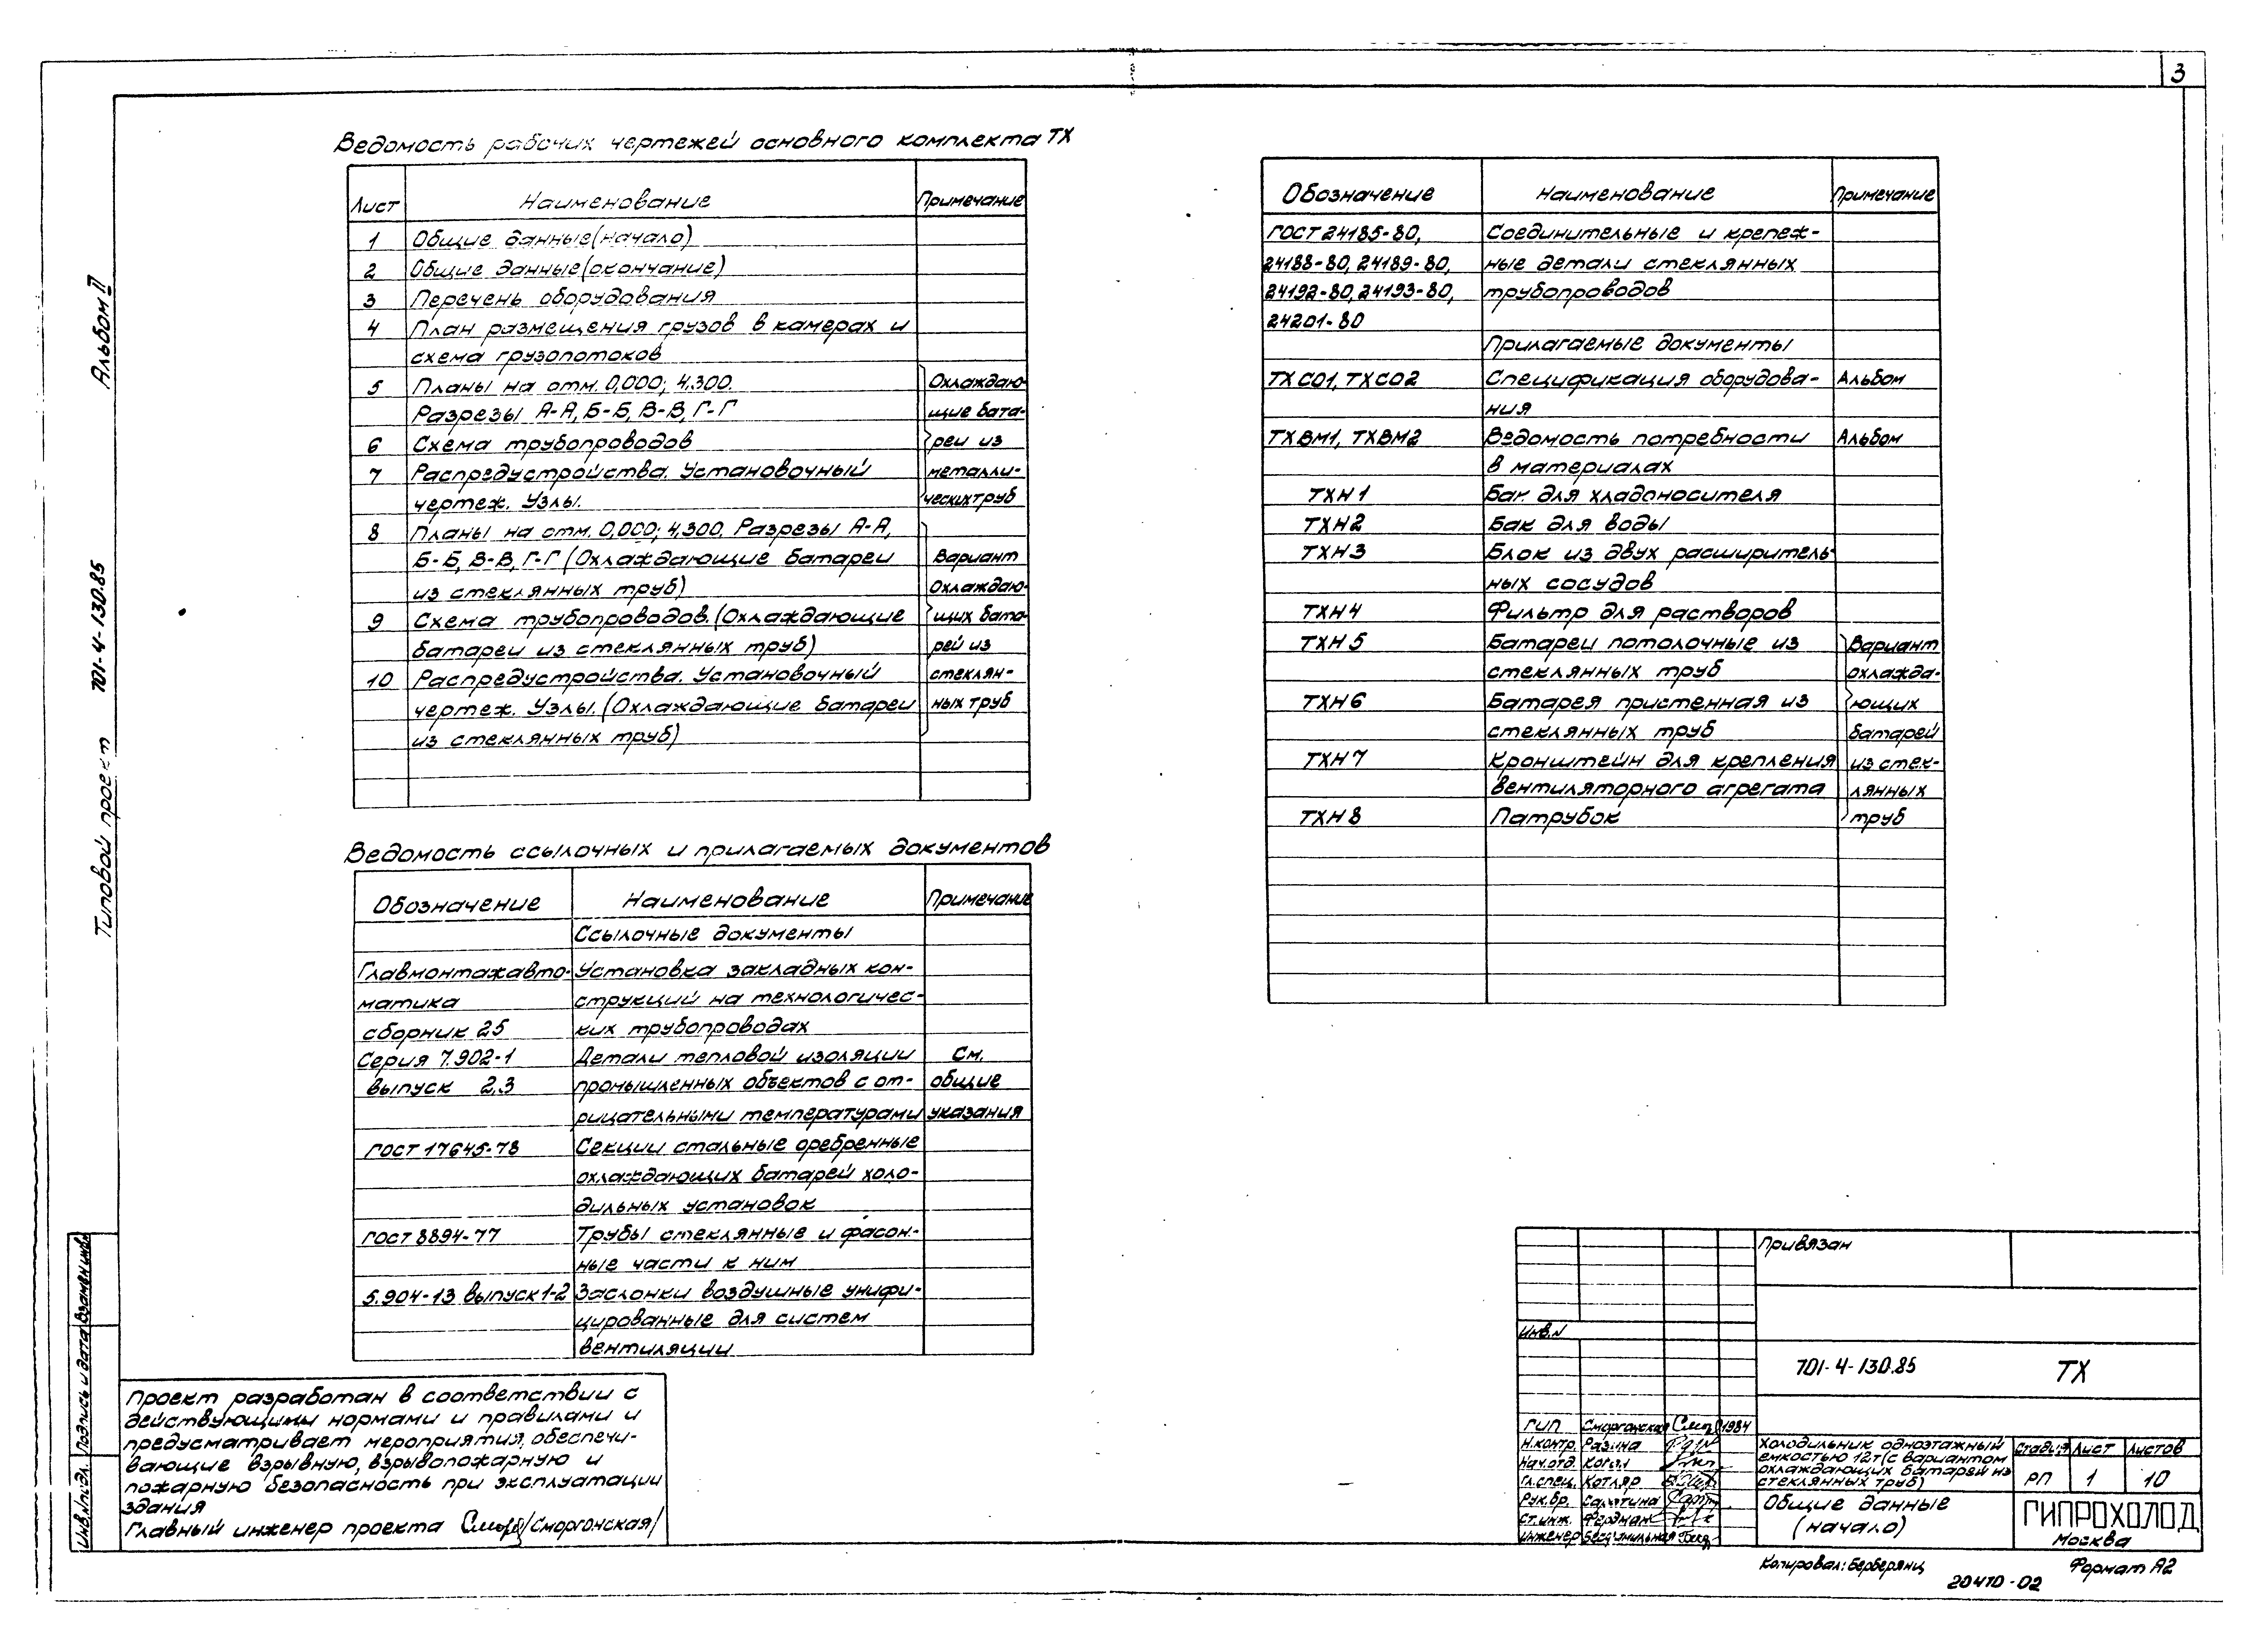 3
Альбом II
Типовой проект 701-4-130.85
Ведомость рабочих чертежей основного комплекта ТХ
Лист Наименование Примечание
1 Общие данные (начало)
2 Общие данные (окончание)
3 Перечень оборудования
4 План размещения грузов в камерах и
схема грузопотоков
5 Планы на отм. 0,000; 4.300. Охлаждаю-
Разрезы А-А, Б-Б, В-В, Г-Г щие бата-
6 Схема трубопроводов реи из
7 Распредустройства. Установочный металли-
чертеж. Узлы. ческих труб
8 Планы на отм. 0,000; 4,300. Разрезы А-А,
Б-Б, В-В, Г-Г (Охлаждающие батареи Вариант
из стеклянных труб) Охлаждаю-
9 Схема трубопроводов. (Охлаждающие щих бата-
батареи из стеклянных труб) рей из
10 Распредустройства. Установочный стеклян-
чертеж. Узлы. (Охлаждающие батареи ных труб
из стеклянных труб)
Ведомость ссылочных и прилагаемых документов
Обозначение Наименование Примечание
Ссылочные документы
Главмонтажавто- Установка закладных кон-
матика струкций на технологичес-
сборник 25 ких трубопроводах
Серия 7.902-1 Детали тепловой изоляции См.
выпуск 2,3 промышленных объектов с от- общие
рицательными температурами указания
ГОСТ 17645-78 Секции стальные оребренные
охлаждающих батарей холо-
дильных установок
ГОСТ 8894-77 Трубы стеклянные и фасон-
ные части к ним
5.904-13 выпуск 1-2 Заслонки воздушные унифи-
цированные для систем
вентиляции
Обозначение Наименование Примечание
ГОСТ 24185-80, Соединительные и крепеж-
24188-80, 24189-80, ные детали стеклянных
24192-80, 24193-80, трубопроводов
24201-80
Прилагаемые документы
ТХСО1, ТХСО2 Спецификация оборудова- Альбом
ния
ТХВМ1, ТХВМ2 Ведомость потребности Альбом
в материалах
ТХН1 Бак для хладоносителя
ТХН2 Бак для воды
ТХН3 Блок из двух расширитель-
ных сосудов
ТХН4 Фильтр для растворов
ТХН5 Батареи потолочные из Вариант
стеклянных труб охлажда-
ТХН6 Батарея пристенная из ющих
стеклянных труб батарей
ТХН7 Кронштейн для крепления из стек-
вентиляторного агрегата лянных
ТХН8 Патрубок труб
Инв.№подл. Подпись и дата Взамен инв.
Проект разработан в соответствии с
действующими нормами и правилами и
предусматривает мероприятия, обеспечи-
вающие взрывную, взрывопожарную и
пожарную безопасность при эксплуатации
здания
Главный инженер проекта /Сморгонская/
Привязан
Инв.N
701-4-130.85 ТХ
ГИП Сморгонская 1984
Н.контр. Разина
Нач.отд. Коган
Гл.спец. Котляр
Рук.бр.
Ст.инж. Фердман
Инженер
Холодильник одноэтажный
емкостью 12т (с вариантом
охлаждающих батарей из
стеклянных труб)
Стадия Лист Листов
РП 1 10
Общие данные
(начало)
ГИПРОХОЛОД
Москва
Копировал: Берберянц
Формат А2
20410-02